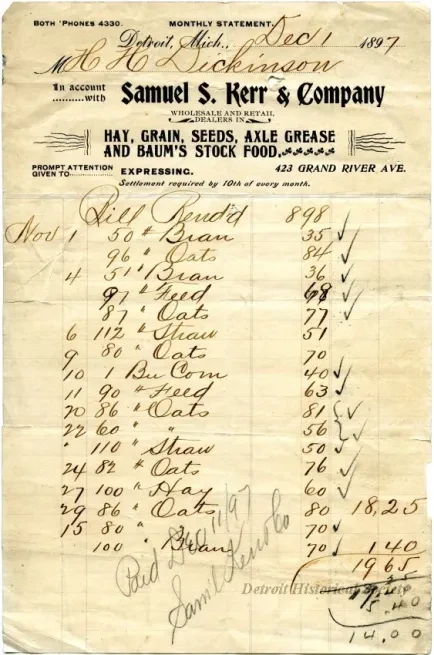 BOTH 'PHONES 4330. MONTHLY STATEMENT.
Detroit, Mich., Dec 1 1897
M H H Dickinson
In account
..........with Samuel S. Kerr & Company
WHOLESALE AND RETAIL
DEALERS IN
HAY, GRAIN, SEEDS, AXLE GREASE
AND BAUM'S STOCK FOOD.
PROMPT ATTENTION
GIVEN TO EXPRESSING. 423 GRAND RIVER AVE.
Settlement required by 10th of every month.
Bill Rend'd 898
Nov 1 50 " Bran 35 ✓
96 " Oats 84 ✓
4 51 " Bran 36 ✓
97 " Feed 68 ✓
87 " Oats 77 ✓
6 112 " Straw 51
9 80 " Oats 70
10 1 Bu Corn 40 ✓
11 90 " Feed 63 ✓
20 86 " Oats 81 ✓
22 60 " " 56 ✓
" 110 " Straw 50 ✓
24 82 " Oats 76 ✓
27 100 " Hay 60 ✓
29 86 " Oats 80 18,25
15 80 " " 70 ✓
100 " Bran 70 ✓ 140
1965
Paid Dec 11/97
Saml Kerr & Co
Detroit Historical Society
5.40
14.00